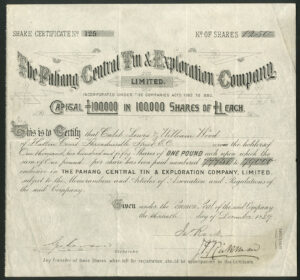 SHARE CERTIFICATE Nº 125 Nº OF SHARES 1250
The Pahang Central Tin & Exploration Company,
LIMITED.
INCORPORATED UNDER THE COMPANIES ACTS 1862 TO 1886.
CAPITAL £100000 IN 100000 SHARES OF £1 EACH.
This is to Certify that Caleb Lewis & William Wood
of Hatton Court Threadneedle Street E.C. the holders of
One thousand two hundred and fifty Shares of ONE POUND and upon which the
sum of One pound per share has been paid numbered
inclusive in THE PAHANG CENTRAL TIN & EXPLORATION COMPANY, LIMITED,
subject to the Memorandum and Articles of Association and Regulations of
the said Company.
Given under the Common Seal of the said Company
the day of December 1887
Directors
Secretary
Any Transfer of these Shares when left for registration should be accompanied by this Certificate.